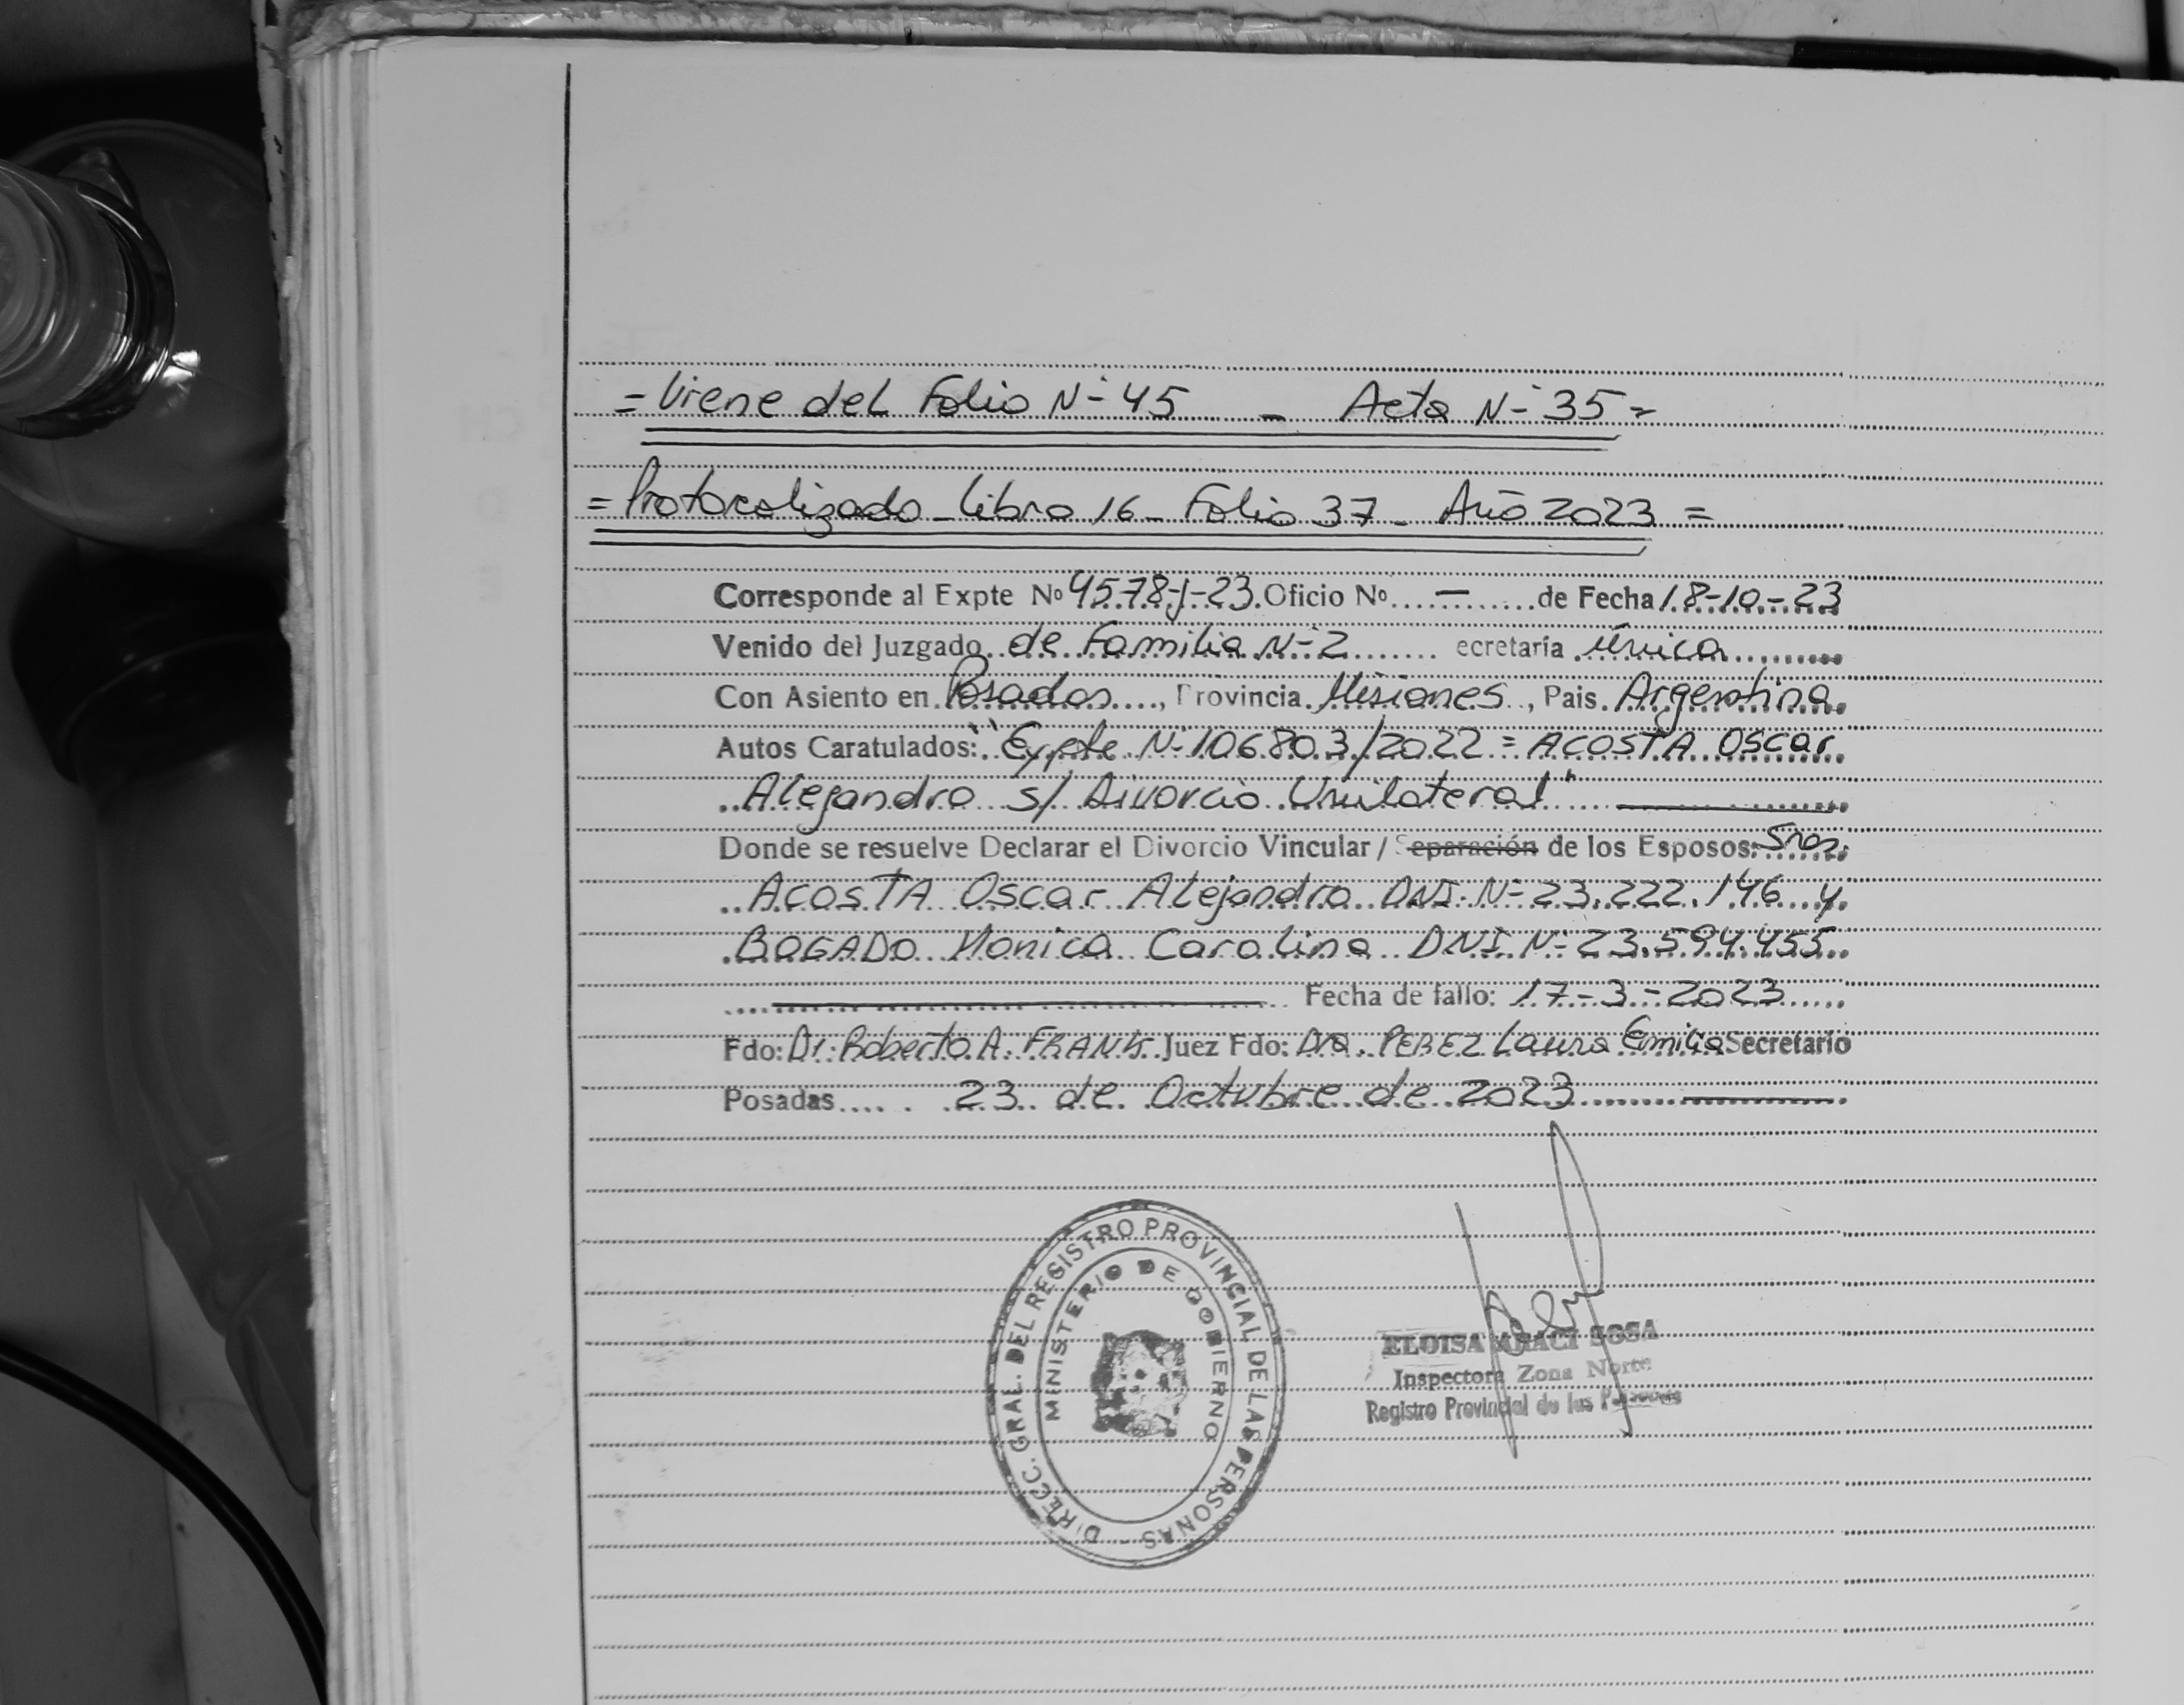 = Viene del Folio Nº 45 - Acta Nº 35 =
= Protocolizado - Libro 16 - Folio 37 - Año 2023 =
Corresponde al Expte Nº 4578-J-23. Oficio Nº....—....de Fecha 18-10-23
Venido del Juzgado de Familia Nº 2....... ecretaría Única
Con Asiento en Posadas...., Provincia. Misiones.., Pais. Argentina.
Autos Caratulados: "Expte Nº 106803/2022 = ACOSTA Oscar
Alejandro s/ Divorcio Unilateral"
Donde se resuelve Declarar el Divorcio Vincular / Separación de los Esposos: Sres.
ACOSTA Oscar Alejandro DNI. Nº 23.222.146 y
BOGADO Monica Carolina DNI Nº 23.594.455
Fecha de fallo: 17-3-2023
Fdo: Dr. Roberto A. FRANK Juez Fdo: Dra. PEREZ Laura Emilia Secretario
Posadas.... 23 de Octubre de 2023
DIRECC. GRAL. DEL REGISTRO PROVINCIAL DE LAS PERSONAS -
MINISTERIO DE GOBIERNO
ELOISA ARACI SOSA
Inspectora Zona Norte
Registro Provincial de las Personas